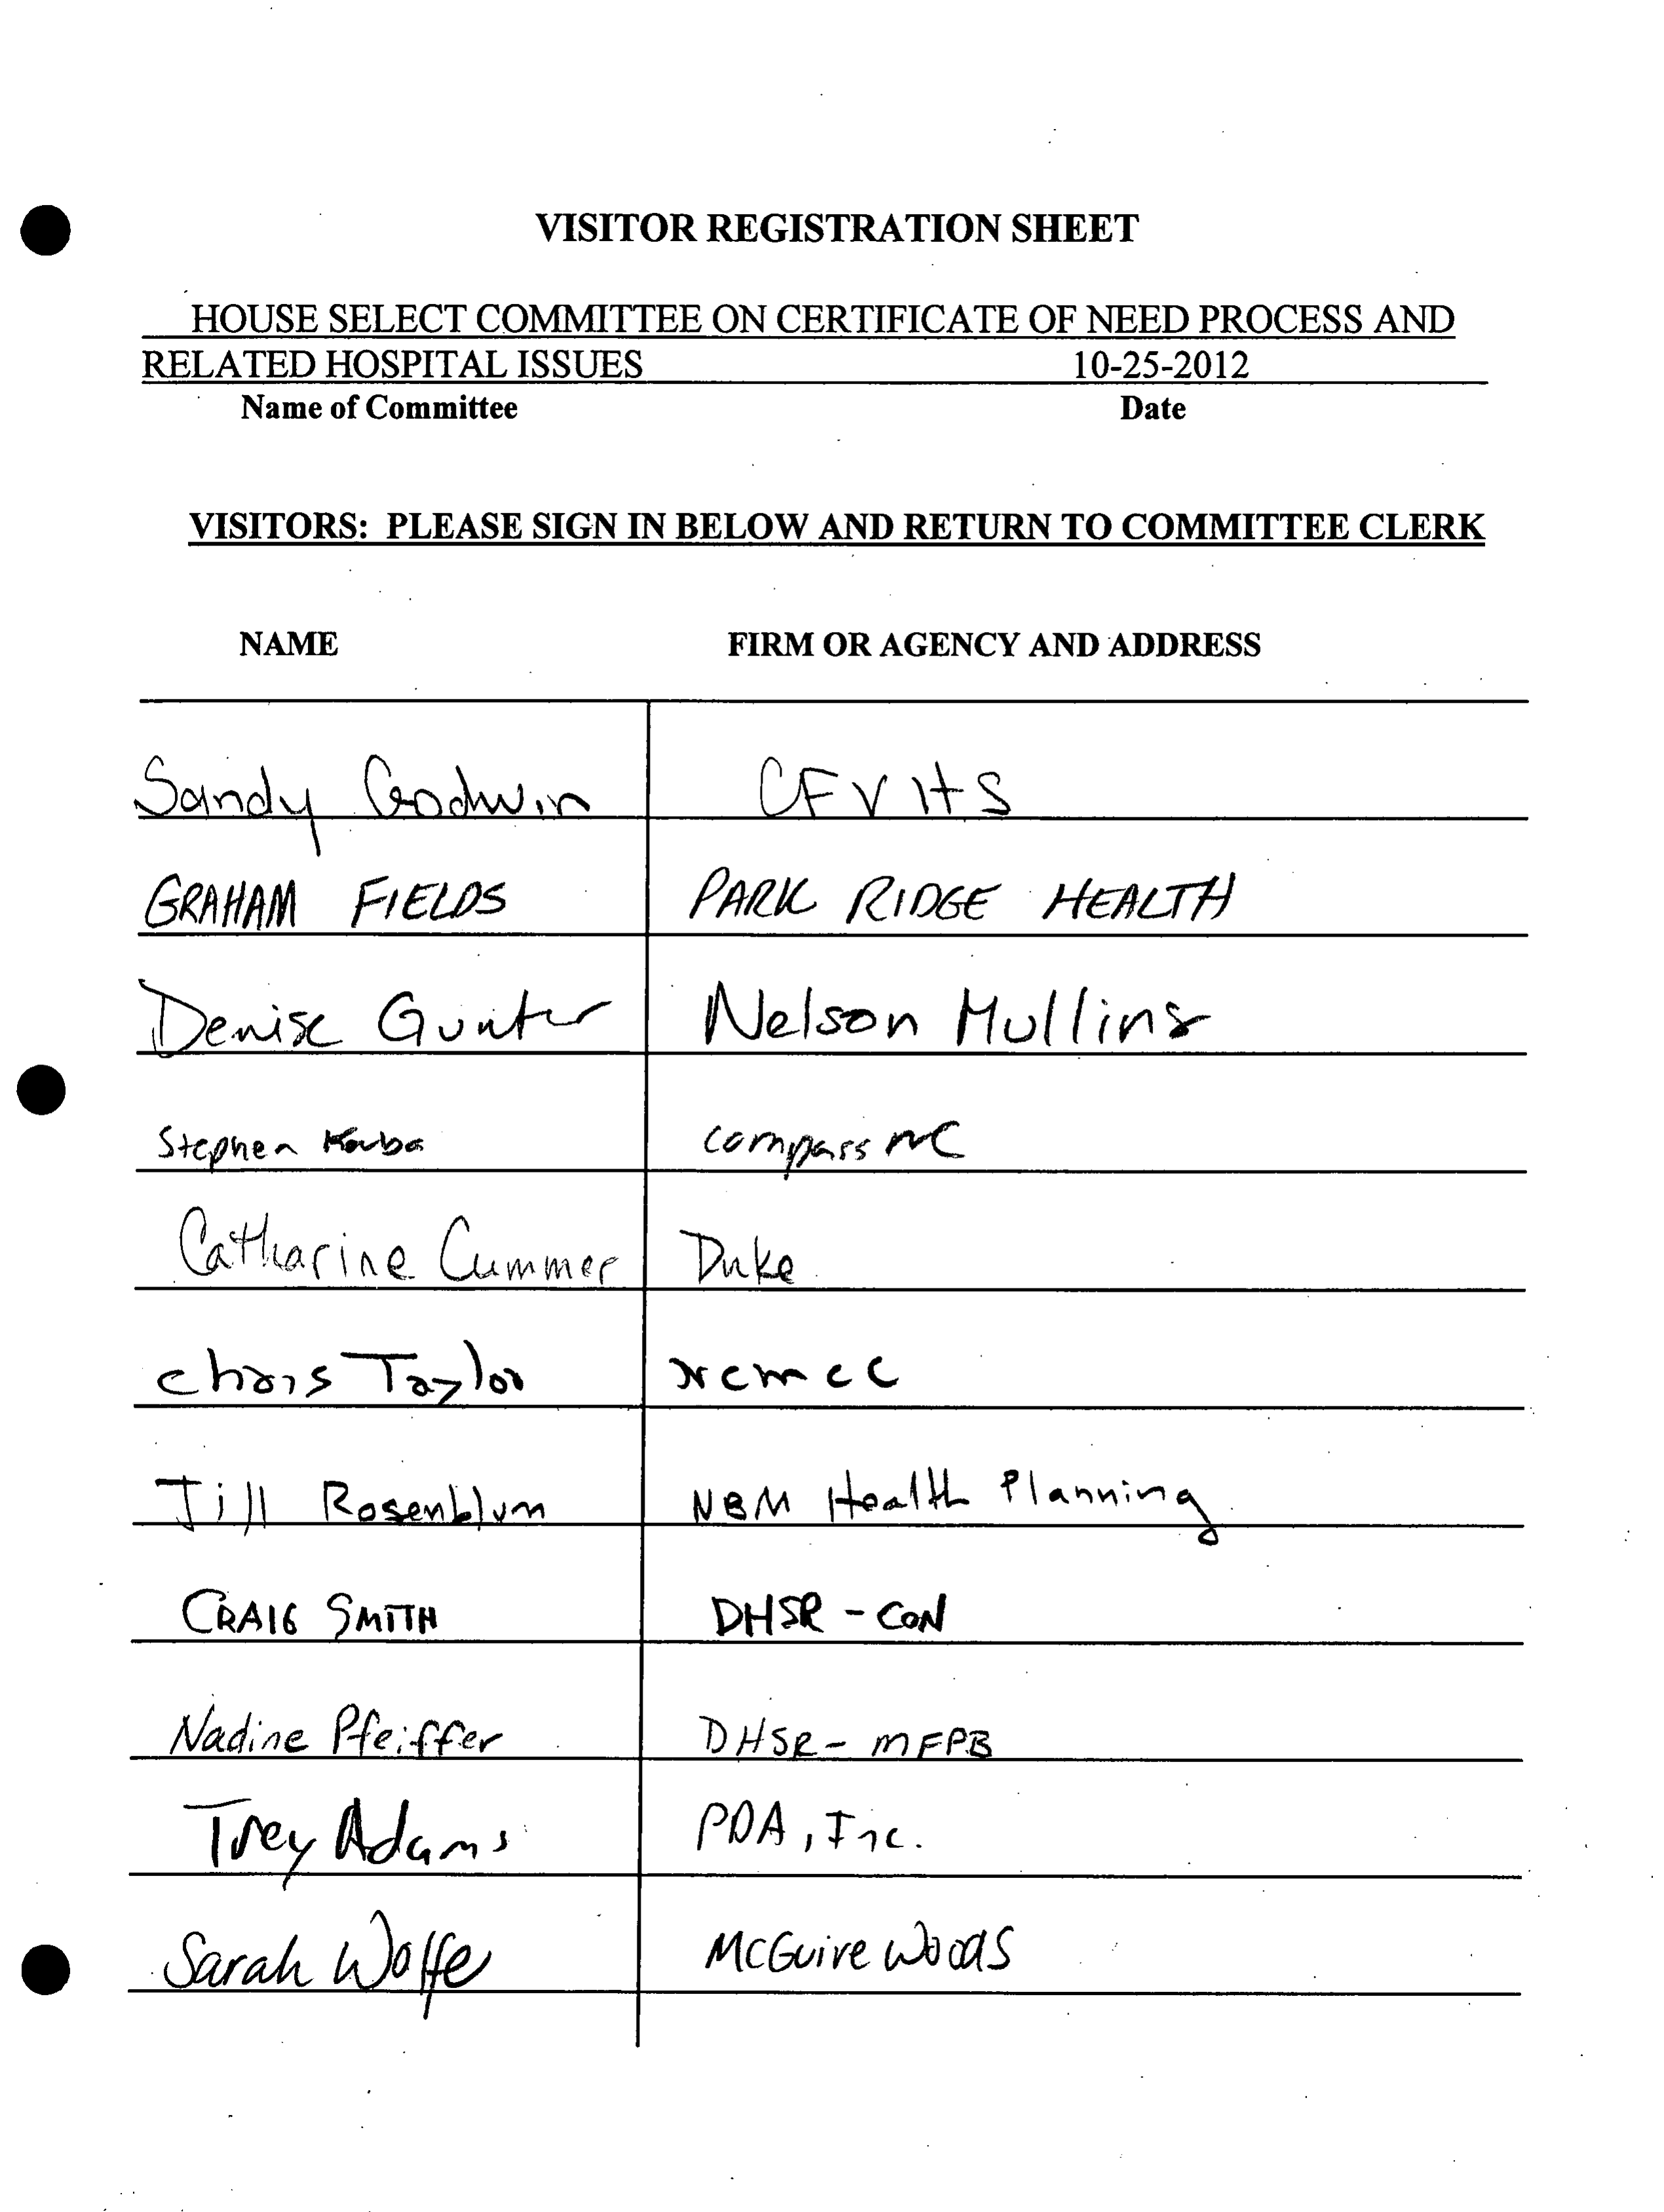 VISITOR REGISTRATION SHEET
HOUSE SELECT COMMITTEE ON CERTIFICATE OF NEED PROCESS AND
RELATED HOSPITAL ISSUES 10-25-2012
Name of Committee Date
VISITORS: PLEASE SIGN IN BELOW AND RETURN TO COMMITTEE CLERK
NAME FIRM OR AGENCY AND ADDRESS
Sandy Godwin CFVHS
GRAHAM FIELDS PARK RIDGE HEALTH
Denise Gunter Nelson Mullins
Stephen compass NC
Catharine Cummer Duke
Chris Taylor NCMCC
Jill Rosenblum NBM Health Planning
CRAIG SMITH DHSR - CON
Nadine Pfeiffer DHSR - MFPB
Trey Adams PDA, Inc.
Sarah Wolfe McGuire Woods